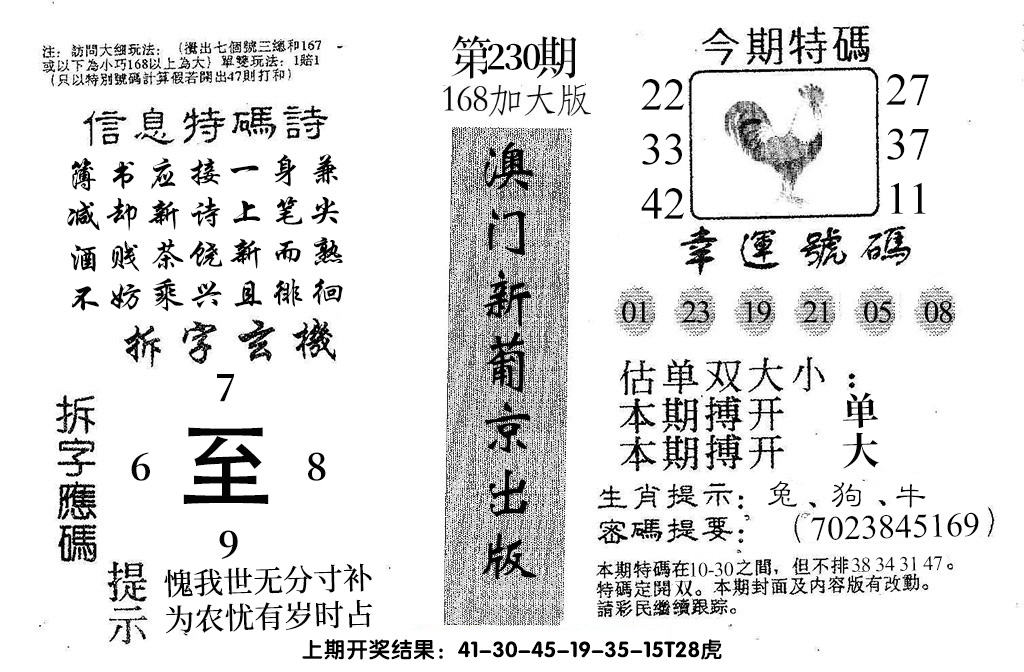 注：訪問大细玩法：（攪出七個號三總和167
或以下為小巧168以上為大）單雙玩法：1賠1
（只以特別號碼計算假若開出47則打和）
信息特碼詩
簿书应接一身兼
减却新诗上笔尖
酒贱茶饶新而熟
不妨乘兴且徘徊
拆字玄機
拆字應碼
7
6 至 8
9
提示
愧我世无分寸补
为农忧有岁时占
第230期
168加大版
澳门新葡京出版
今期特碼
22 27
33 37
42 11
幸運號碼
01 23 19 21 05 08
估单双大小：
本期搏开 单
本期搏开 大
生肖提示：兔、狗、牛
密碼提要：（7023845169）
本期特碼在10-30之間，但不排38 34 31 47。
特碼定開双。本期封面及内容版有改動。
請彩民繼續跟踪。
上期开奖结果：41-30-45-19-35-15T28虎